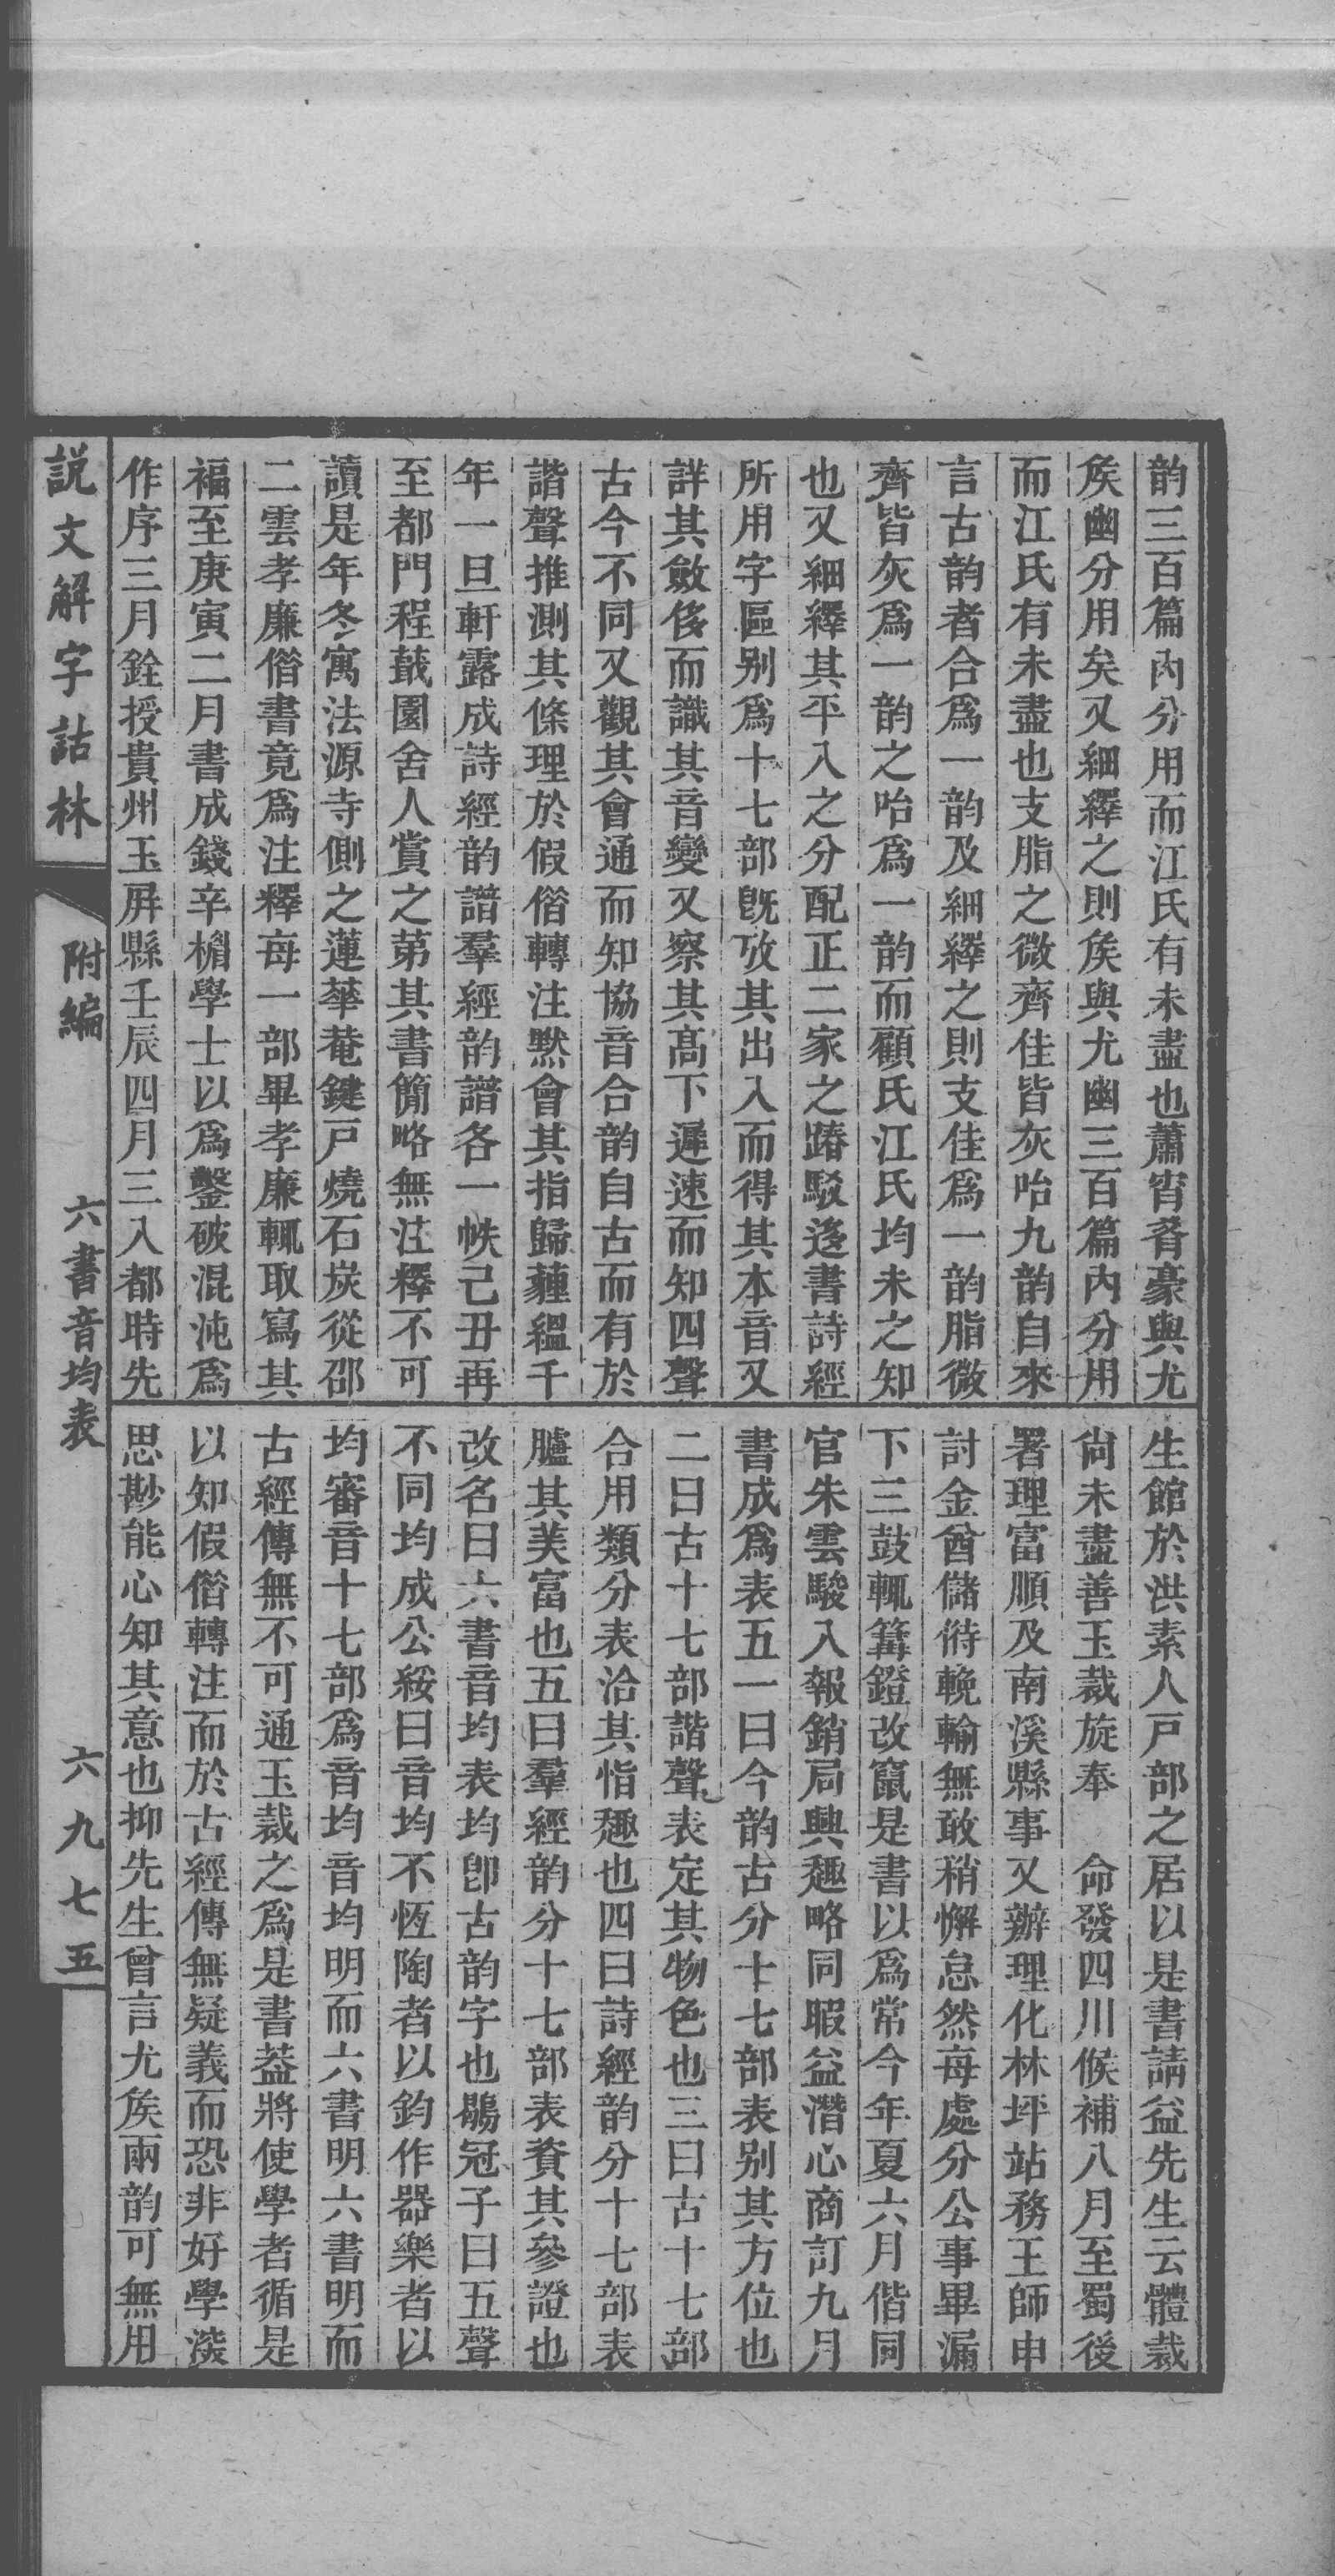 韵三百篇內分用而江氏有未盡也蕭宵肴豪與尤
矦幽分用矣又細繹之則矦與尤幽三百篇內分用
而江氏有未盡也支脂之微齊佳皆灰咍九韵自來
言古韵者合爲一韵及細繹之則支佳爲一韵脂微
齊皆灰爲一韵之咍爲一韵而顧氏江氏均未之知
也又細繹其平入之分配正二家之踳駁遂書詩經
所用字區别爲十七部旣攷其出入而得其本音又
詳其斂侈而識其音變又察其高下遲速而知四聲
古今不同又觀其會通而知協音合韵自古而有於
諧聲推測其條理於假偺轉注黙會其指歸蘊縕千
年一旦軒露成詩經韵譜羣經韵譜各一帙己丑再
至都門程蕺園舍人賞之苐其書簡略無注釋不可
讀是年冬寓法源寺側之蓮華菴鍵戸燒石炭從邵
二雲孝廉偺書竟爲注釋每一部畢孝廉輒取寫其
福至庚寅二月書成錢辛楣學士以爲鑿破混沌爲
作序三月銓授貴州玉屛縣壬辰四月三入都時先
生館於洪素人戸部之居以是書請益先生云體裁
尙未盡善玉裁旋奉 命發四川候補八月至蜀後
署理富順及南溪縣事又辦理化林坪站務王師申
討金酋儲偫輓輸無敢稍懈怠然每處分公事畢漏
下三鼓輒篝鐙改竄是書以爲常今年夏六月偕同
官朱雲駿入報銷局興趣略同暇益潛心商訂九月
書成爲表五一曰今韵古分十七部表别其方位也
二曰古十七部諧聲表定其物色也三曰古十七部
合用類分表洽其恉趣也四曰詩經韵分十七部表
臚其美富也五曰羣經韵分十七部表資其參證也
改名曰六書音均表均卽古韵字也鶡冠子曰五聲
不同均成公綏曰音均不恆陶者以鈞作器樂者以
均審音十七部爲音均音均明而六書明六書明而
古經傳無不可通玉裁之爲是書葢將使學者循是
以知假偺轉注而於古經傳無疑義而恐非好學深
思尠能心知其意也抑先生曾言尤矦兩韵可無用
說文解字詁林
附編
六書音均表
六九七五